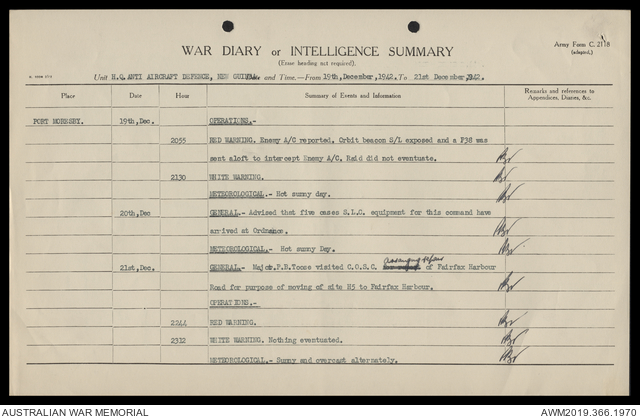 Army Form C. 2118
(adapted.)
WAR DIARY or INTELLIGENCE SUMMARY
(Erase heading not required).
Unit H.Q. ANTI AIRCRAFT DEFENCE, NEW GUINEA Date and Time.—From 19th,December,1942. To 21st December,1942.
Place Date Hour Summary of Events and Information Remarks and references to
Appendices, Diaries, &c.
PORT MORESBY. 19th,Dec. OPERATIONS.-
2055 RED WARNING. Enemy A/C reported. Orbit beacon S/L exposed and a P38 was
sent aloft to intercept Enemy A/C. Raid did not eventuate.
2130 WHITE WARNING.
METEOROLOGICAL.- Hot sunny day.
20th,Dec GENERAL.- Advised that five cases S.L.C. equipment for this command have
arrived at Ordnance.
METEOROLOGICAL.- Hot sunny Day.
21st,Dec. GENERAL.- Major.P.B.Toose visited C.O.S.C. arranging repair of Fairfax Harbour
Road for purpose of moving of site H5 to Fairfax Harbour.
OPERATIONS.-
2244 RED WARNING.
2312 WHITE WARNING. Nothing eventuated.
METEOROLOGICAL.- Sunny and overcast alternately.
AUSTRALIAN WAR MEMORIAL AWM2019.366.1970